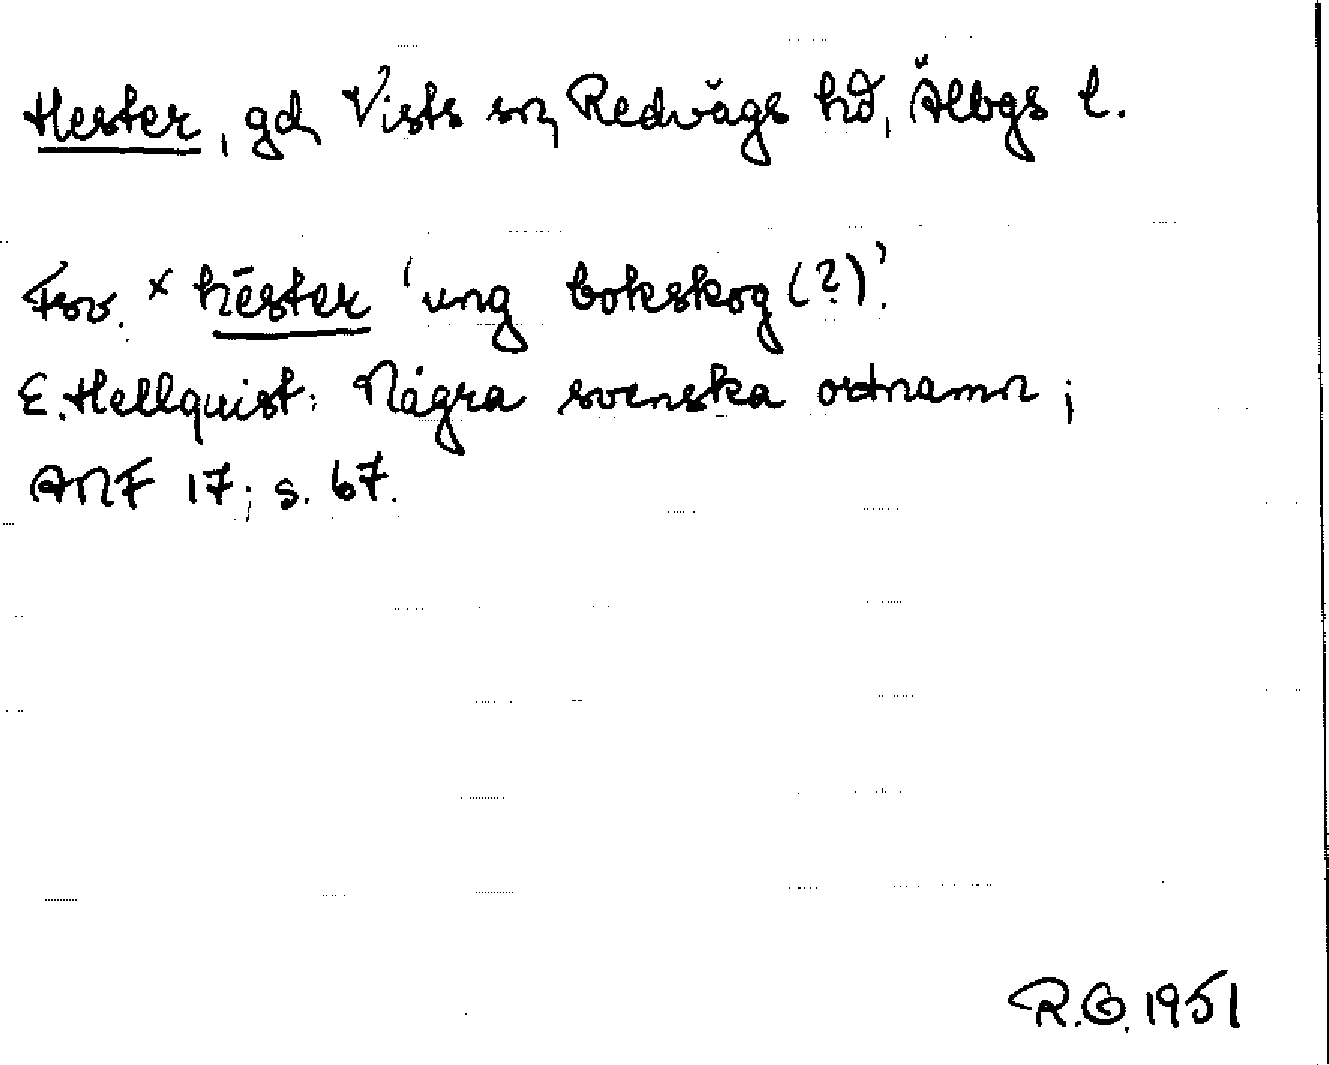 Hester, gd, Vists sn, Redvägs hd, Älbgs l.
Fsv. × hēster 'ung bokskog (?)'.
E. Hellquist: Några svenska ortnamn;
ANF 17; s. 67.
R.G. 1951